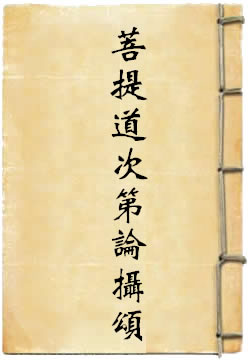 菩提道次第論攝頌